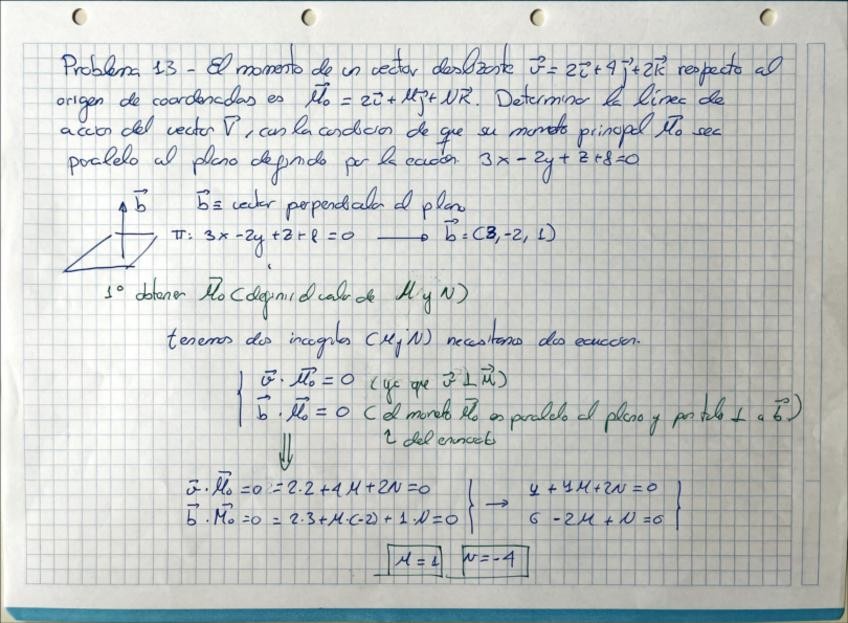 Problema 13 - El momento de un vector deslizante v⃗ = 2i⃗ + 4j⃗ + 2k⃗ respecto al
origen de coordenadas es M⃗o = 2i⃗ + Mj⃗ + Nk⃗. Determina la línea de
accion del vector V⃗, con la condicion de que su momento principal M⃗o sea
paralelo al plano definido por la ecuación 3x - 2y + z + 8 = 0
b⃗
b⃗ ≡ vector perpendicular al plano
π: 3x - 2y + z + 8 = 0 → b⃗ = (3, -2, 1)
1º obtener M⃗o (definir el valor de M y N)
tenemos dos incognitas (M y N) necesitamos dos ecuacion.
v⃗ · M⃗o = 0 (ya que v⃗ ⊥ M⃗)
b⃗ · M⃗o = 0 (el momento M⃗o es paralelo al plano y por tanto ⊥ a b⃗)
del enunciado
⇓
v⃗ · M⃗o = 0 = 2·2 + 4M + 2N = 0 → 4 + 4M + 2N = 0
b⃗ · M⃗o = 0 = 2·3 + M·(-2) + 1·N = 0 6 - 2M + N = 0
M = 1 N = -4